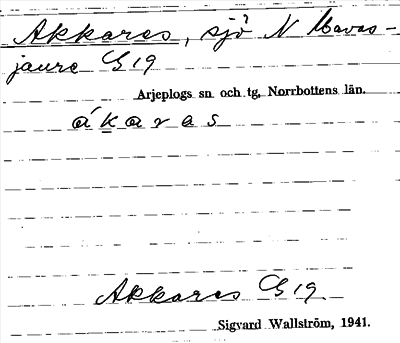 Akkares, sjö N Mavas-
jaure G 19
Arjeplogs sn. och tg, Norrbottens län.
ákaras
Akkares G 19
Sigvard Wallström, 1941.